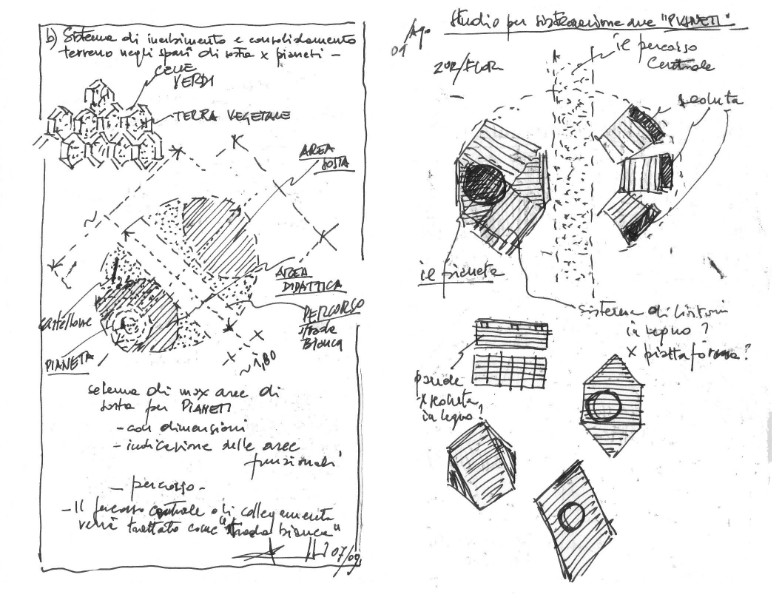 b) Sistema di inerbimento e consolidamento
terreno negli spazi di sosta x pianeti -
CELLE
VERDI
TERRA VEGETALE
AREA
SOSTA
AREA
DIDATTICA
PERCORSO
strada
Bianca
PIANETA
~1,80
schema di max aree di
sosta per PIANETI
- con dimensioni
- indicazione delle aree
funzionali
- percorso -
- Il percorso centrale di collegamento
verrà trattato come "strada bianca"
07/09
Studio per sistemazione aree "PIANETI"
01
il percorso
Centrale
seduta
il pianeta
sistema di listoni
in legno?
x piattaforma?
x seduta
in legno?